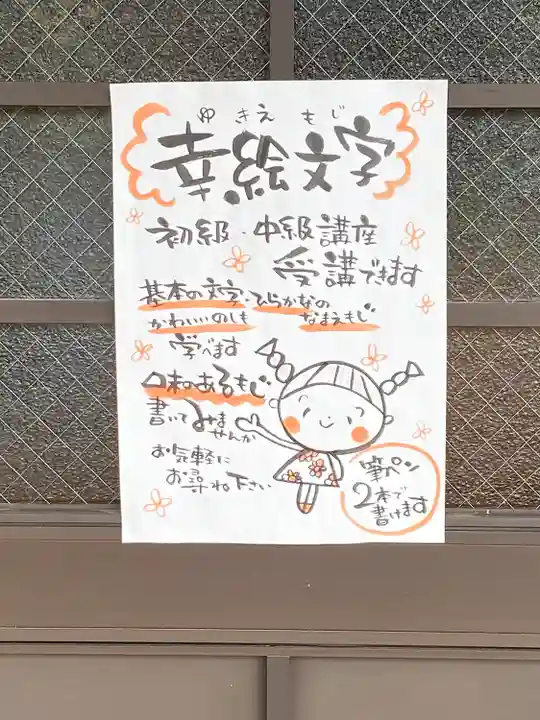 ゆきえ もじ
幸絵文字
初級・中級講座
受講できます
基本の文字・ひらかなの
かわいいのしも なまえもじ
学べます
口味のあるもじ
書いてみませんか
お気軽に
お尋ね下さい
筆ペン
2本で
書けます